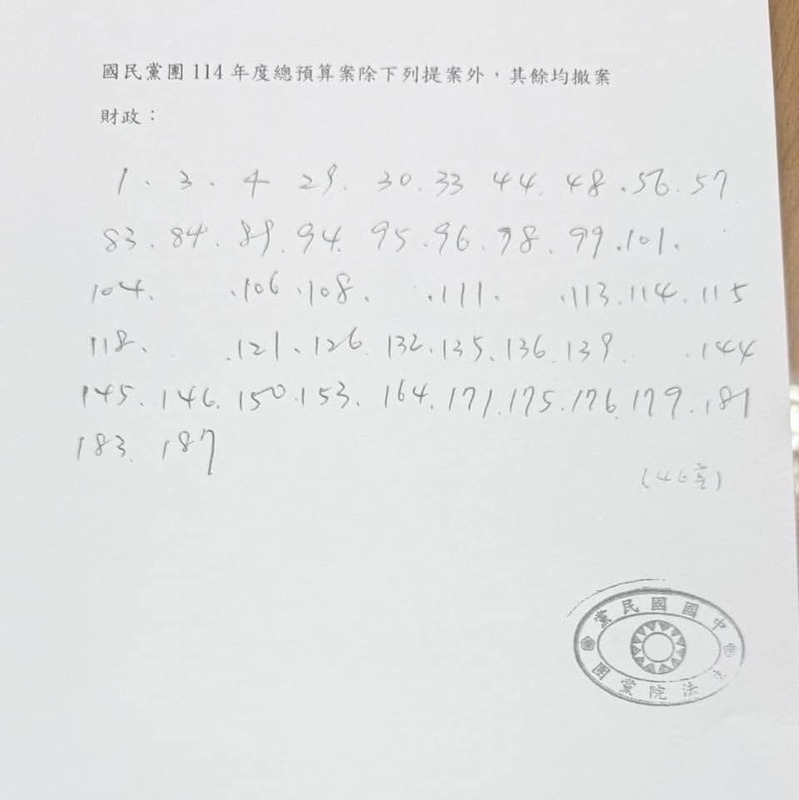 國民黨團 114 年度總預算案除下列提案外，其餘均撤案
財政：
1. 3. 4 29. 30. 33 44. 48. 56. 57
83. 84. 89. 94. 95. 96. 98. 99. 101.
104. .106. 108. .111. .113. 114. 115
118. .121. 126. 132. 135. 136. 139 .144
145. 146. 150. 153. 164. 171. 175. 176. 179. 181
183. 187
中國國民黨
立法院黨團